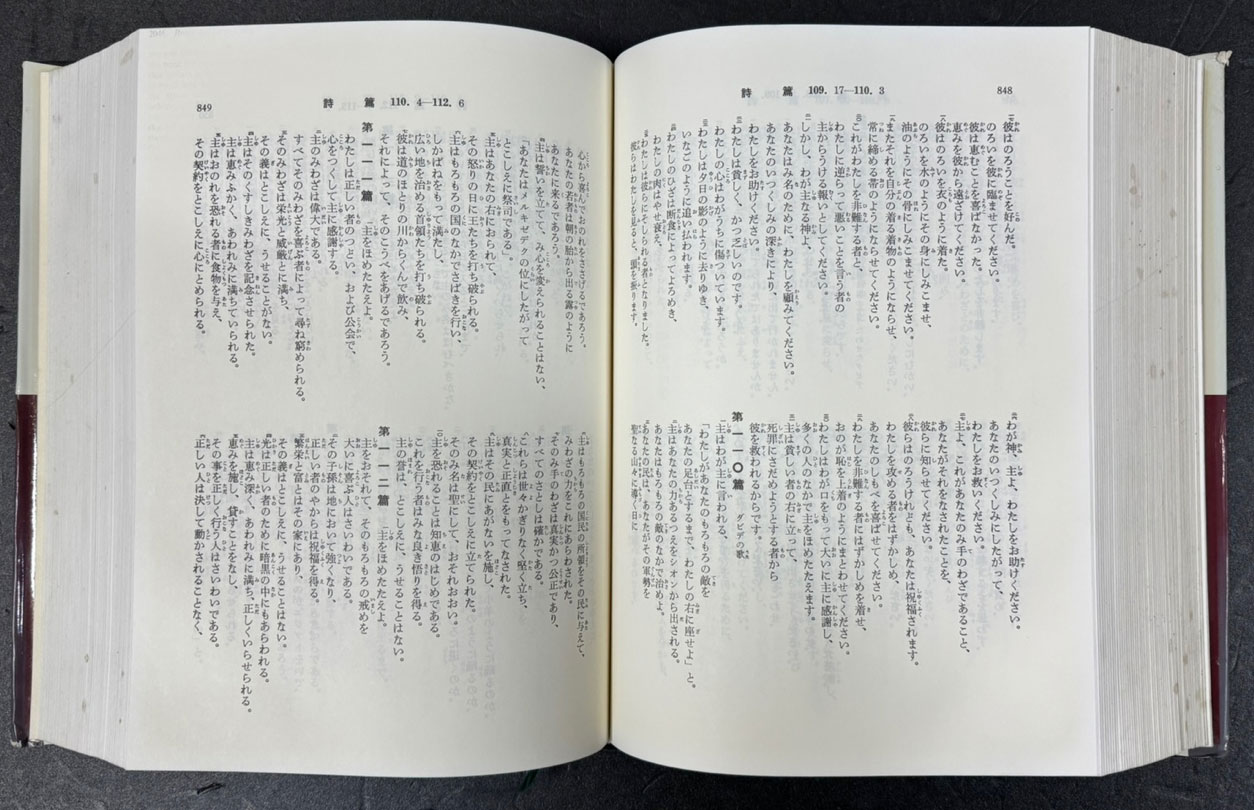 詩　篇　109. 17—110. 3
848
彼はのろうことを好んだ。
のろいを彼に臨ませてください。
彼は恵むことを喜ばなかった。
恵みを彼から遠ざけてください。
彼はのろいを衣のように着た。
のろいを水のようにその身にしみこませ、
油のようにその骨にしみこませてください。
またそれを自分の着る着物のようにならせ、
常に締める帯のようにならせてください。
これがわたしを非難する者と、
わたしに逆らって悪いことを言う者の
主からうける報いとしてください。
しかし、わが主なる神よ、
あなたはみ名のために、わたしを顧みてください。
あなたのいつくしみの深きにより、
わたしをお助けください。
わたしは貧しく、かつ乏しいのです。
わたしの心はわがうちに傷ついています。
わたしは夕日の影のように去りゆき、
いなごのように追い払われます。
わたしのひざは断食によってよろめき、
わたしの肉はやせ衰え、
わたしは彼らにそしられる者となりました。
彼らはわたしを見ると、頭を振ります。
わが神、主よ、わたしをお助けください。
あなたのいつくしみにしたがって、
わたしをお救いください。
主よ、これがあなたのみ手のわざであること、
あなたがそれをなされたことを、
彼らに知らせてください。
彼らはのろうけれども、あなたは祝福されます。
わたしを攻める者をはずかしめ、
あなたのしもべを喜ばせてください。
わたしを非難する者にはずかしめを着せ、
おのが恥を上着のようにまとわせてください。
わたしはわが口をもって大いに主に感謝し、
多くの人のなかで主をほめたたえます。
主は貧しい者の右に立って、
死罪にさだめようとする者から
彼を救われるからです。
第一一〇篇　ダビデの歌
主はわが主に言われる、
「わたしがあなたのもろもろの敵を
あなたの足台とするまで、わたしの右に座せよ」と。
主はあなたの力あるつえをシオンから出される。
あなたはもろもろの敵のなかで治めよ。
あなたの民は、あなたがその軍勢を
聖なる山々に導く日に
詩　篇　110. 4—112. 6
849
心から喜んでおのれをささげるであろう。
あなたの若者は朝の胎から出る露のように
あなたに来るであろう。
主は誓いを立てて、み心を変えられることはない、
「あなたはメルキゼデクの位にしたがって
とこしえに祭司である」。
主はあなたの右におられて、
その怒りの日に王たちを打ち破られる。
主はもろもろの国のなかでさばきを行い、
しかばねをもって満たし、
広い地を治める首領たちを打ち破られる。
彼は道のほとりの川からくんで飲み、
それによって、そのこうべをあげるであろう。
第一一一篇
主をほめたたえよ。
わたしは正しい者のつどい、および公会で、
心をつくして主に感謝する。
主のみわざは偉大である。
すべてそのみわざを喜ぶ者によって尋ね窮められる。
そのみわざは栄光と威厳とに満ち、
その義はとこしえに、うせることがない。
主はそのくすしきみわざを記念させられた。
主は恵みふかく、あわれみに満ちていられる。
主はおのれを恐れる者に食物を与え、
その契約をとこしえに心にとめられる。
主はもろもろの国民の所領をその民に与えて、
みわざの力をこれにあらわされた。
そのみ手のわざは真実かつ公正であり、
すべてのさとしは確かである。
これらは世々かぎりなく堅く立ち、
真実と正直とをもってなされた。
主はその民にあがないを施し、
その契約をとこしえに立てられた。
そのみ名は聖にして、おそれおおい。
主を恐れることは知恵のはじめである。
これを行う者はみな良き悟りを得る。
主の誉は、とこしえに、うせることはない。
第一一二篇
主をほめたたえよ。
主をおそれて、そのもろもろの戒めを
大いに喜ぶ人はさいわいである。
その子孫は地において強くなり、
正しい者のやからは祝福を得る。
繁栄と富とはその家にあり、
その義はとこしえに、うせることはない。
光は正しい者のために暗黒の中にもあらわれる。
主は恵み深く、あわれみに満ち、正しくいらせられる。
恵みを施し、貸すことをなし、
その事を正しく行う人はさいわいである。
正しい人は決して動かされることなく、